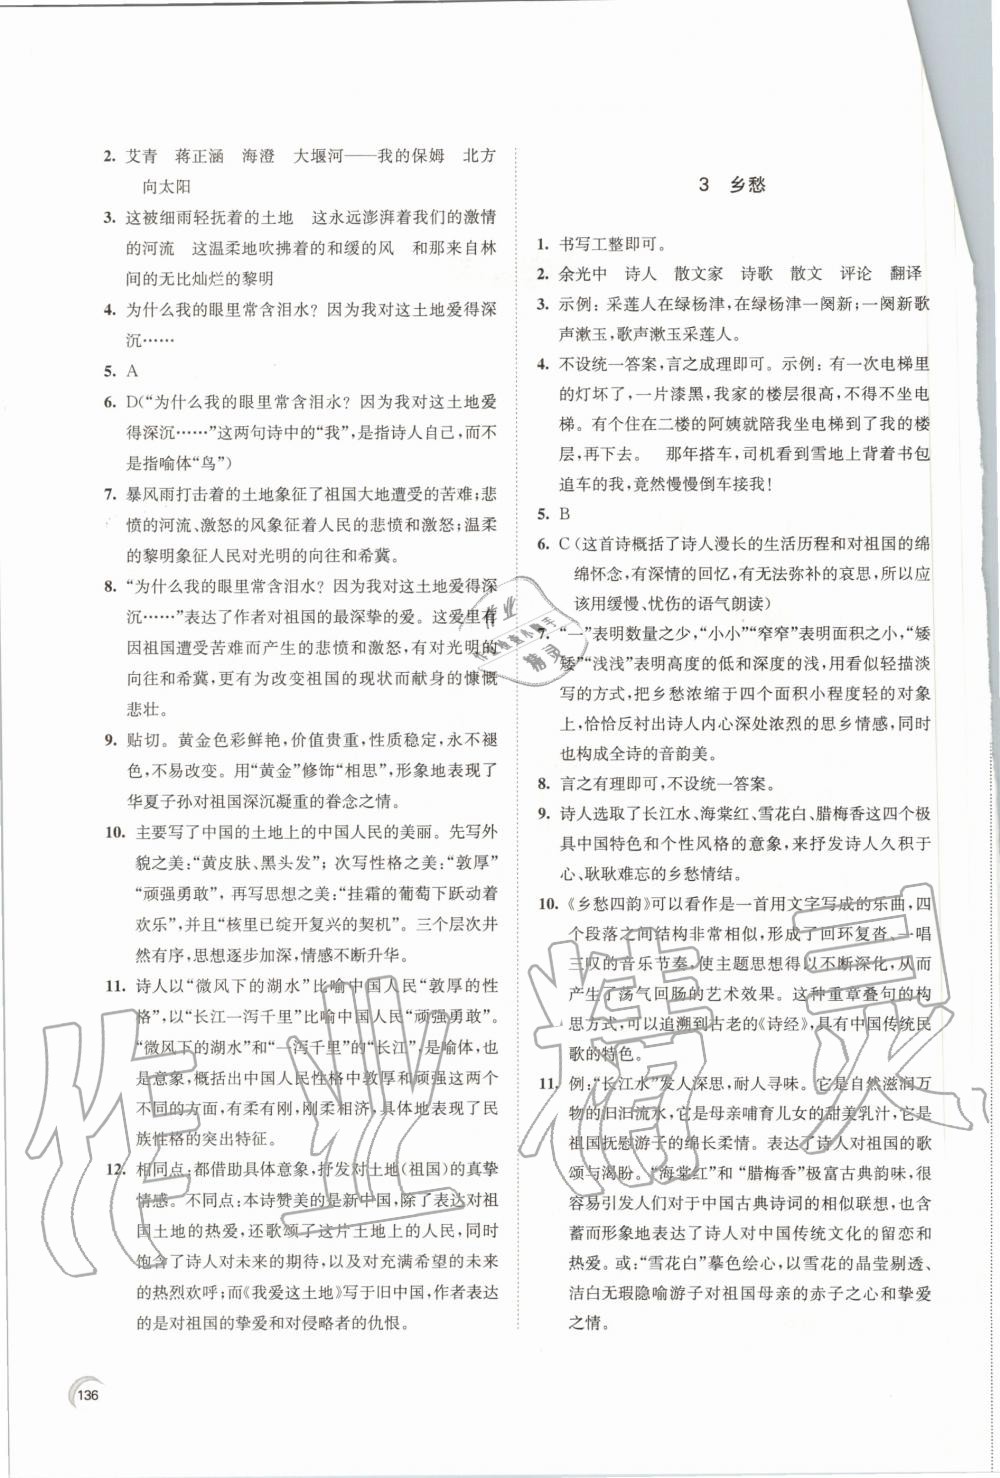 2. 艾青　蒋正涵　海澄　大堰河——我的保姆　北方
向太阳
3. 这被细雨轻抚着的土地　这永远澎湃着我们的激情
的河流　这温柔地吹拂着的和缓的风　和那来自林
间的无比灿烂的黎明
4. 为什么我的眼里常含泪水？因为我对这土地爱得深
沉……
5. A
6. D(“为什么我的眼里常含泪水？因为我对这土地爱
得深沉……”这两句诗中的“我”,是指诗人自己,而不
是指喻体“鸟”)
7. 暴风雨打击着的土地象征了祖国大地遭受的苦难;悲
愤的河流、激怒的风象征着人民的悲愤和激怒;温柔
的黎明象征人民对光明的向往和希冀。
8. “为什么我的眼里常含泪水？因为我对这土地爱得深
沉……”表达了作者对祖国的最深挚的爱。这爱里有
因祖国遭受苦难而产生的悲愤和激怒,有对光明的向
往和希冀,更有为改变祖国的现状而献身的慷慨
悲壮。
9. 贴切。黄金色彩鲜艳,价值贵重,性质稳定,永不褪
色,不易改变。用“黄金”修饰“相思”,形象地表现了
华夏子孙对祖国深沉凝重的眷念之情。
10. 主要写了中国的土地上的中国人民的美丽。先写外
貌之美:“黄皮肤、黑头发”;次写性格之美:“敦厚”
“顽强勇敢”,再写思想之美:“挂霜的葡萄下跃动着
欢乐”,并且“核里已绽开复兴的契机”。三个层次井
然有序,思想逐步加深,情感不断升华。
11. 诗人以“微风下的湖水”比喻中国人民“敦厚的性
格”,以“长江一泻千里”比喻中国人民的“顽强勇敢”。
“微风下的湖水”和“一泻千里”的“长江”,是喻体,也
是意象,概括出中国人民性格中敦厚和勇敢这两个
不同的方面,有柔有刚,刚柔相济,具体地表现了民
族性格的突出特征。
12. 相同点:都借助具体意象,抒发对土地(祖国)的真挚
情感。不同点:本诗赞美的是新中国,除了表达对祖
国土地的热爱,还歌颂了这片土地上的人民,同时
饱含了诗人对未来的期待,以及对充满希望的未来
的热烈欢呼;而《我爱这土地》写于旧中国,作者表达
的是对祖国的挚爱和对侵略者的仇恨。
3　乡愁
1. 书写工整即可。
2. 余光中　诗人　散文家　诗歌　散文　评论　翻译
3. 示例:采莲人在绿杨津,在绿杨津一阕新;一阕新歌
声漱玉,歌声漱玉采莲人。
4. 不设统一答案,言之成理即可。示例:有一次电梯里
的灯坏了,一片漆黑,我家的楼层很高,不得不坐电
梯。有个住在二楼的阿姨就陪我坐电梯到了我的楼
层,再下去。　那年搭车,司机看到雪地上背着书包
追车的我,竟然慢慢倒车接我!
5. B
6. C(这首诗概括了诗人漫长的生活历程和对祖国的绵
绵怀念,有深情的回忆,有无法弥补的哀思,所以应
该用缓慢、忧伤的语气朗读)
7. “一”表明数量之少,“小小”“窄窄”表明面积之小,“矮
矮”“浅浅”表明高度的低和深度的浅,用看似轻描淡
写的方式,把乡愁浓缩于四个面积小程度轻的对象
上,恰恰反衬出诗人内心深处浓烈的思乡情感,同时
也构成全诗的音韵美。
8. 言之有理即可,不设统一答案。
9. 诗人选取了长江水、海棠红、雪花白、腊梅香这四个极
具中国特色和个性风格的意象,来抒发诗人久积于
心、耿耿难忘的乡愁情结。
10. 《乡愁四韵》可以看作是一首用文字写成的乐曲,四
个段落之间结构非常相似,形成了回环复沓、一唱
三叹的音乐节奏,使主题思想得以不断深化,从而
产生了荡气回肠的艺术效果。这种重章叠句的构
思方式,可以追溯到古老的《诗经》,具有中国传统民
歌的特色。
11. 例:“长江水”发人深思,耐人寻味。它是自然滋润万
物的汩汩流水,它是母亲哺育儿女的甜美乳汁,它是
祖国抚慰游子的绵长柔情。表达了诗人对祖国的歌
颂与渴盼。“海棠红”和“腊梅香”极富古典韵味,很
容易引发人们对于中国古典诗词的相似联想,也含
蓄而形象地表达了诗人对中国传统文化的留恋和
热爱。或:“雪花白”摹色绘心,以雪花的晶莹剔透、
洁白无瑕隐喻游子对祖国母亲的赤子之心和挚爱
之情。
136
作业精灵